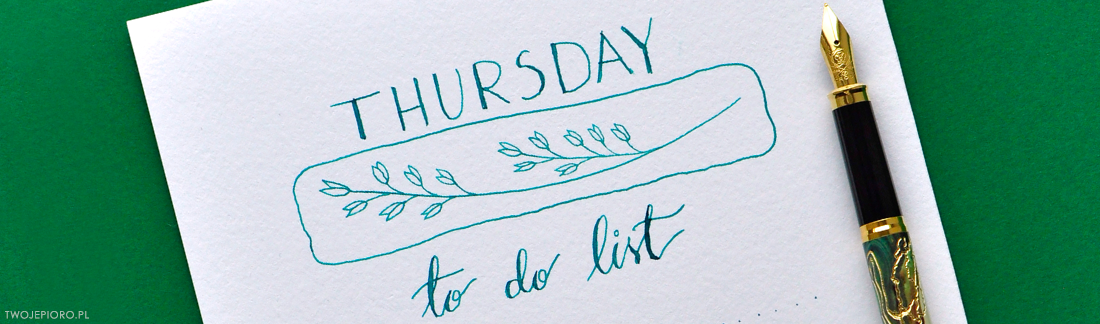 THURSDAY
to do list
TWOJEPIORO.PL